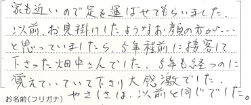 家も近いので足を運ばせてもらいました。
以前、お見掛けしたようなお顔の方が・・・
と思っていましたら、5年程前に接客して
下さった畑中さんでした。5年も経つのに
覚えていていて下さり大感激でした。
やさしさは、以前と同じでした。
お名前(フリガナ)